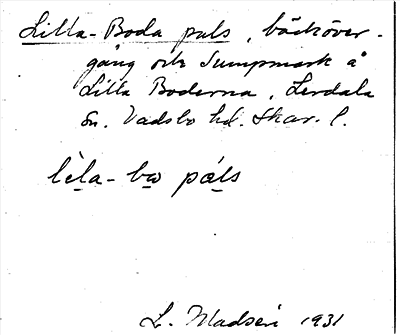 Lilla-Boda puls, bäcköver-
gång och sumpmark å
Lilla Boderna, Lerdala
sn. Vadsbo hd. Skar. l.
lela-bω pals
L. Madsén 1931